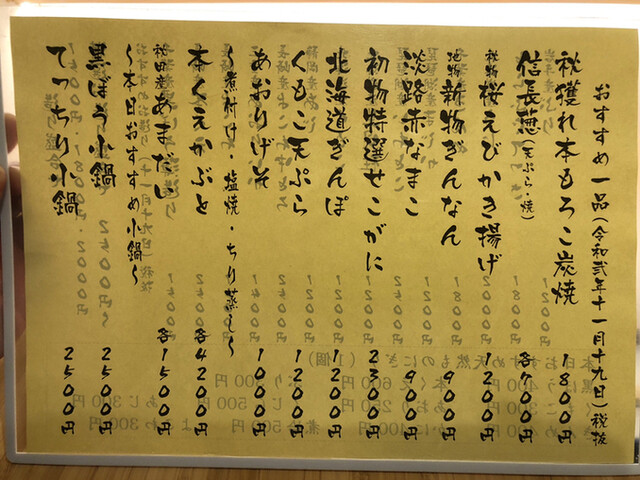 おすすめ一品(令和弐年十一月十九日)税抜
秋獲れ本もろこ炭焼 1800円
信長葱(天ぷら・焼) 各900円
秋物 桜えびかき揚げ 1200円
地物 新物ぎんなん 900円
淡路赤なまこ 900円
初物特選せこがに 2300円
北海道ぎんぽ 1200円
くもこ天ぷら 1200円
あおりげそ 1000円
〜煮付け・塩焼・ちり蒸し〜
本くえかぶと 各4200円
あまだい 各1500円
〜本日おすすめ小鍋〜
黒ぼう小鍋 2500円
てっちり小鍋 2500円